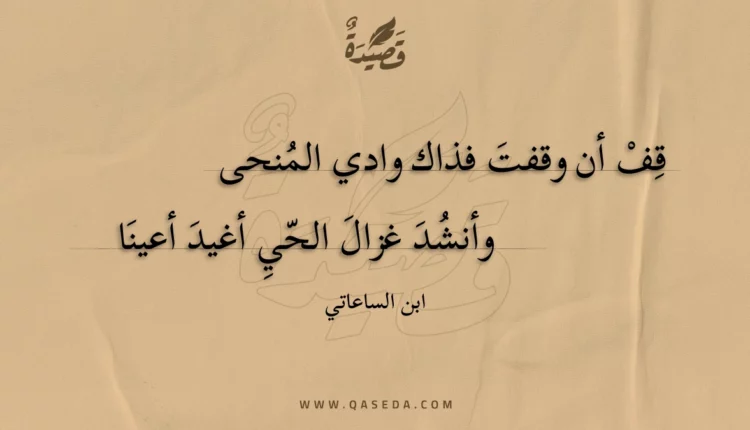 قَصِيْدَةٌ
قِفْ أن وقفتَ فذاك وادي المُنحى
وأنشُدَ غزالَ الحّيِ أغيدَ أعينَا
ابن الساعاتي
WWW.QASEDA.COM